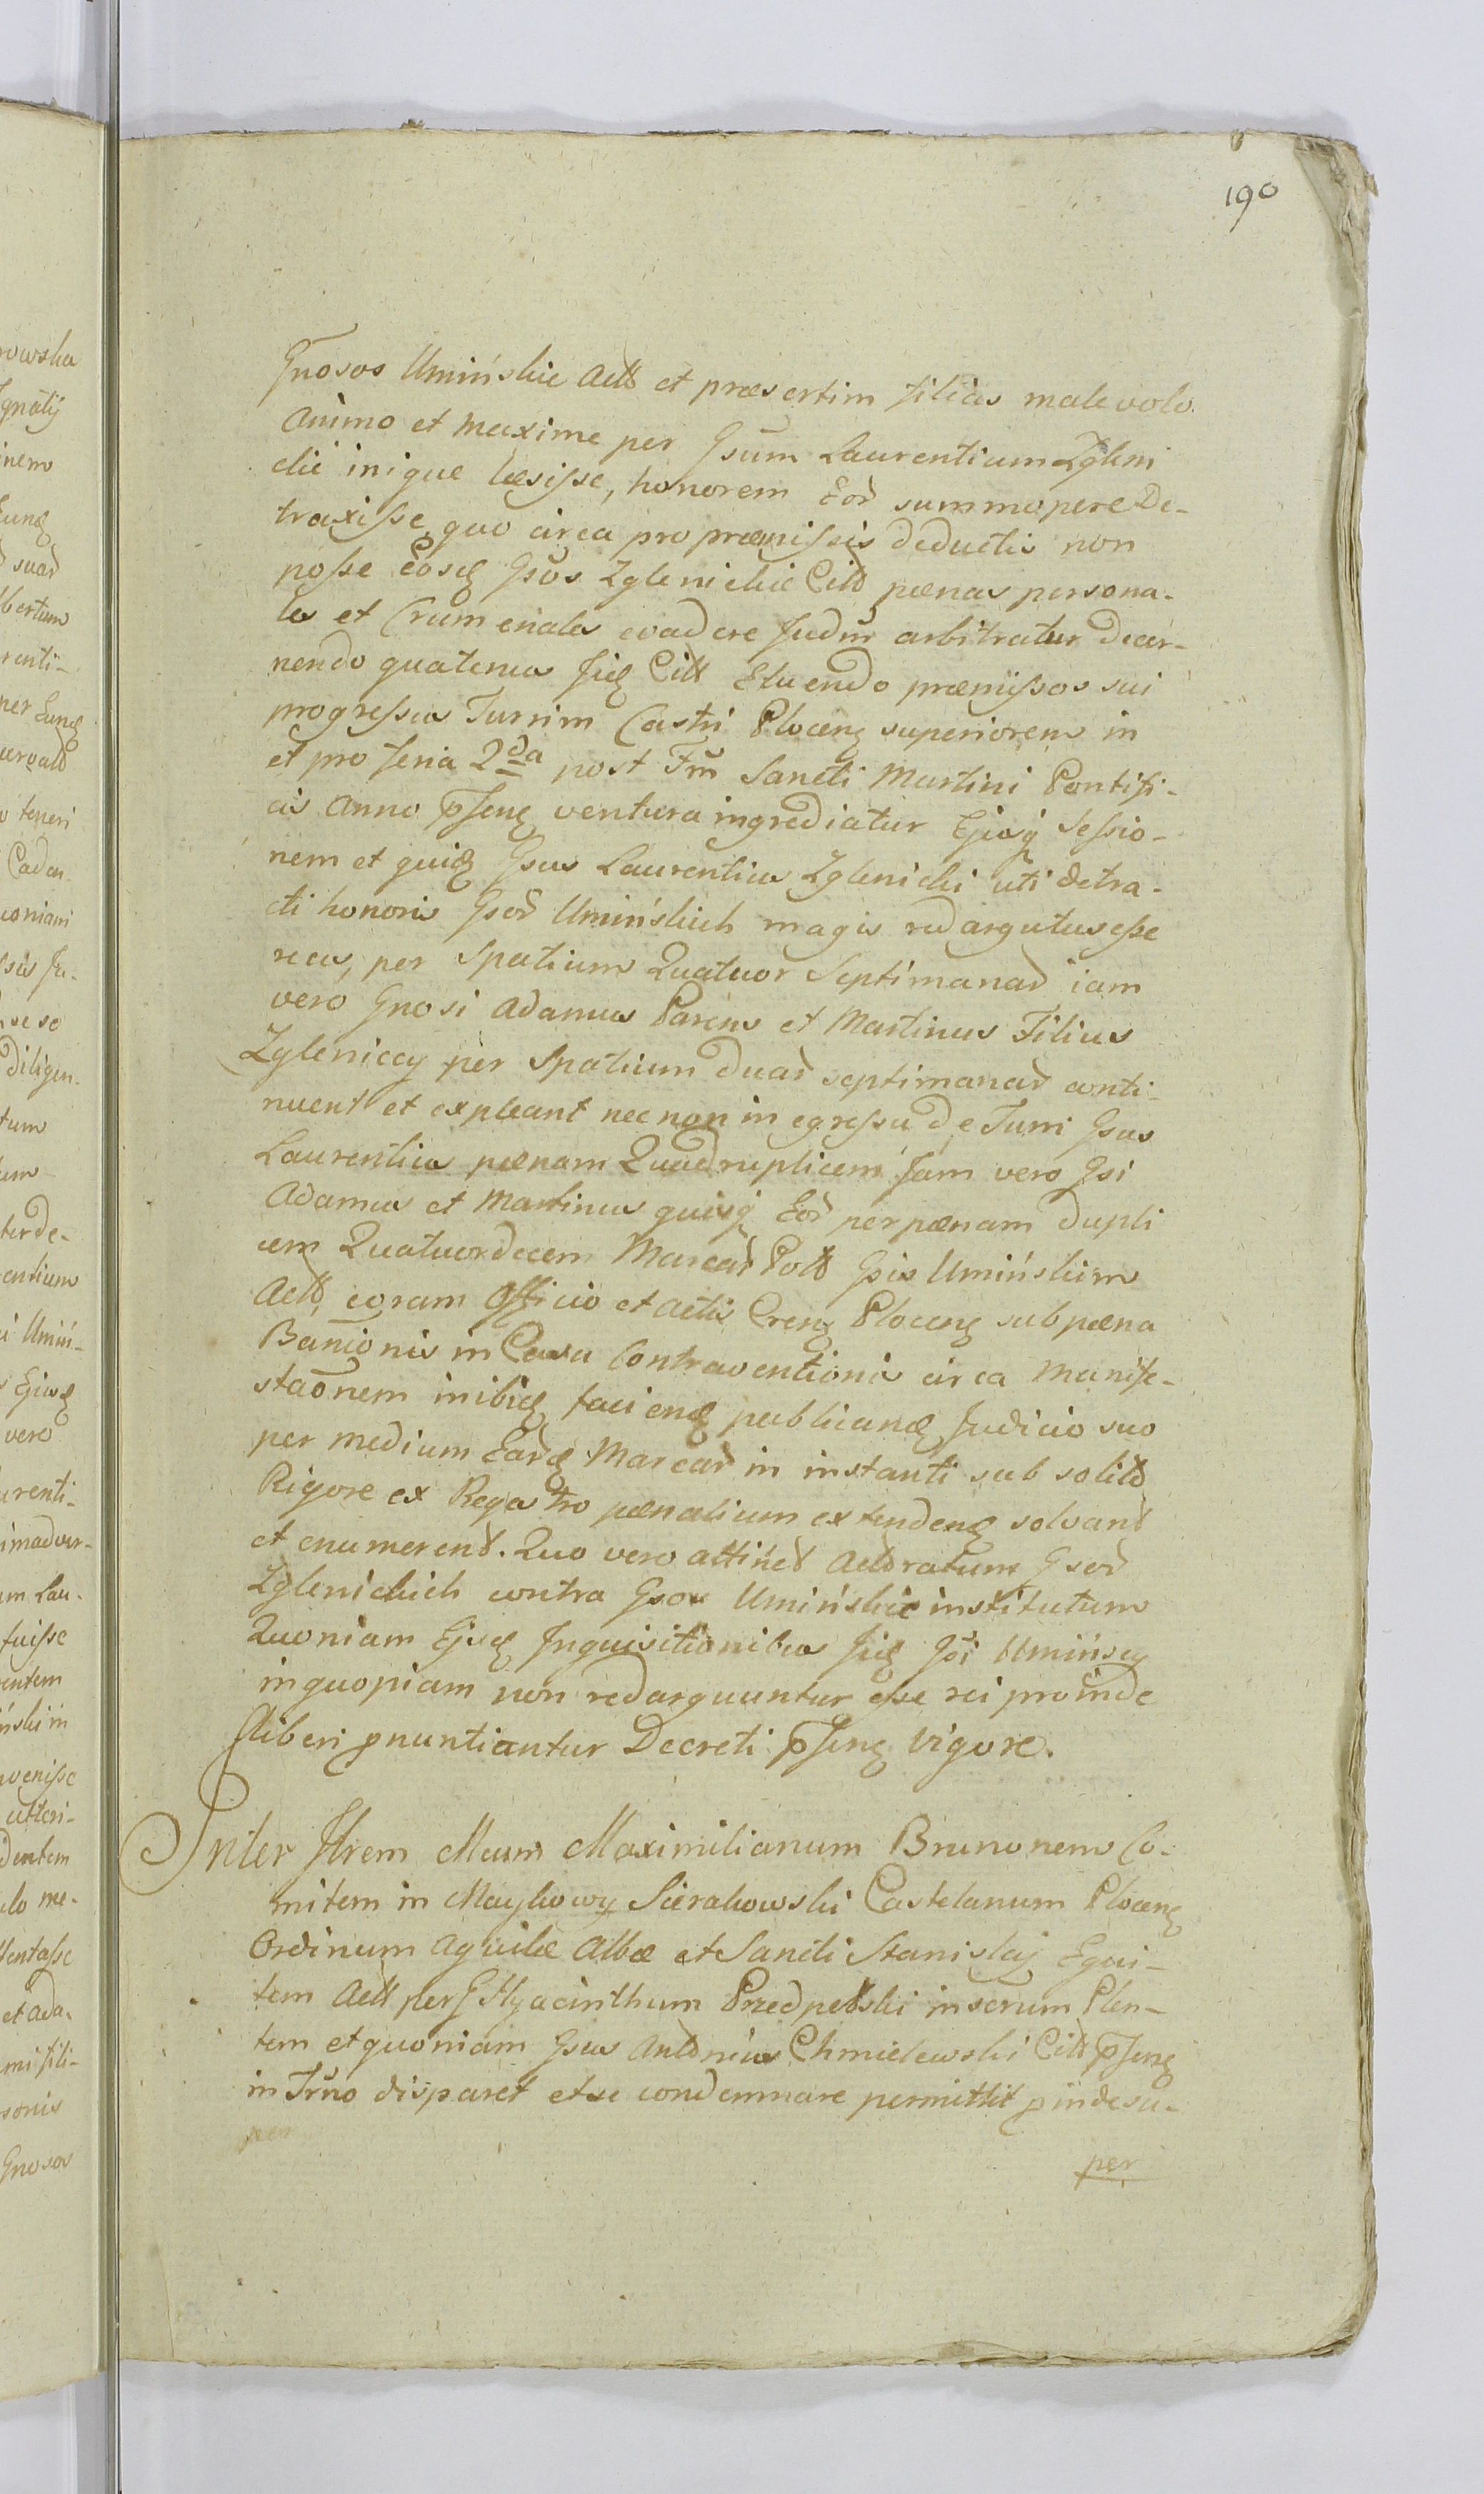 190
Gnosos Umińskie Actt et præsertim filias malevolo
animo et maxime per Gsum Laurentium Zgleni
ckii inique læsisse, honorem Eor summopere De-
traxisse, quo circa pro præmissis deductis non
posse Eosq Gsos Zglenickie Citt pænas persona-
les et Crumenales evadere Judm arbitratur Decer-
nendo quatenus Jiq Citt Eluendo præmissos sui
progressus Turrim Castri Plocenq superiorem in
et pro feria 2da post Fm Sancti Martini Pontifi-
cis Anno pſenq ventura ingrediatur Ejusq Sessio-
nem et quiq Gsus Laurentius Zglenicki uti detra-
cti honoris Gsor Umińskich magis redargutus esse
reus, per Spatium Quatuor Septimanar iam
vero Gnosi Adamus Parens et Martinus Filius
Zgleniccy per Spatium Duar septimanar conti-
nuent et expleant nec non in egressu De Turri Gsus
Laurentius pænam Quadruplicem Jam vero Gsi
Adamus et Martinus quisq Eor per pænam Dupli
cem Quatuordecem Marcar Poll Gsis Umińskim
Actt, coram Officio et Actis Crenq Plocenq sub pæna
Bannionis in Casu Contraventionis circa Manife-
staonem inibiq faciend publicand Judicio suo
per medium Earq Marcar in instanti sub solito
Rigore ex Regestro pænalium extendenq solvant
et enumerent. Quo vero attinet Actoratum Gsor
Zglenickich contra Gsos Umińskie institutum
Quoniam Ejsq Inquisitionibus Jiq Gsi Umińscy
inquopiam non redarguuntur esse rei proinde
liberi pnuntiantur Decreti pſenq vigore.
Inter Jllrem Mcum Maximilianum Brunonem Co-
mitem in Maykowy Sierakowski Castelanum Plocenq
Ordinum Aquilæ Albæ et Sancti Stanislaj Equi-
tem Actt per G Hyacinthum Przedpełski inscrum Plen-
tem et quoniam Gsus Antonius Chmielewski Citt pſenq
in Trno disparet et se condemnare permittit pindesu-
per
per